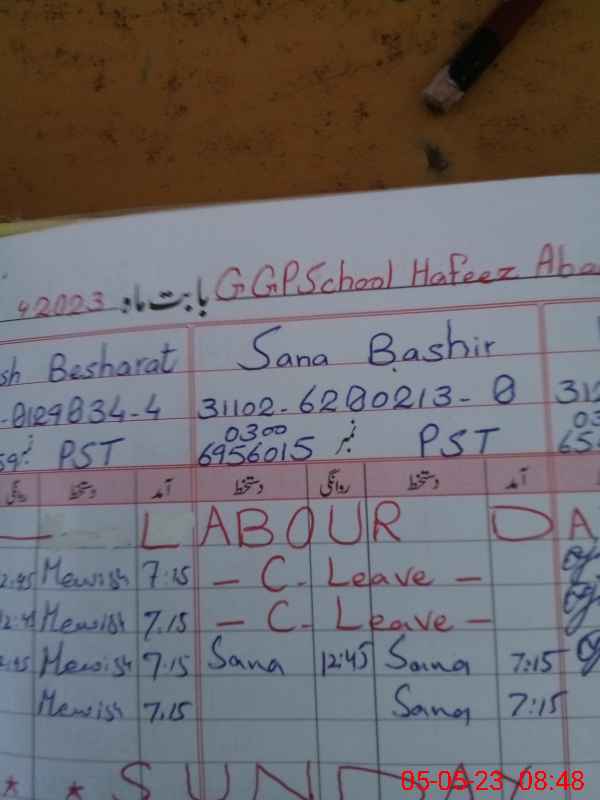 بابت ماہ 42023 GGPSchool Hafeez Aba
sh Besharat Sana Bashir
-0129834-4 31102-6280213-8 312
PST 0300 6956015 نمبر PST
روانگی دستخط آمد دستخط روانگی دستخط آمد
LABOUR DA
2:45 Mewish 7:15 - C. Leave -
12:45 Mewish 7.15 - C. Leave -
Mewish 7:15 Sana 12:45 Sana 7:15
Mewish 7.15 Sana 7:15
* * SUNDAY
05-05-23 08:48